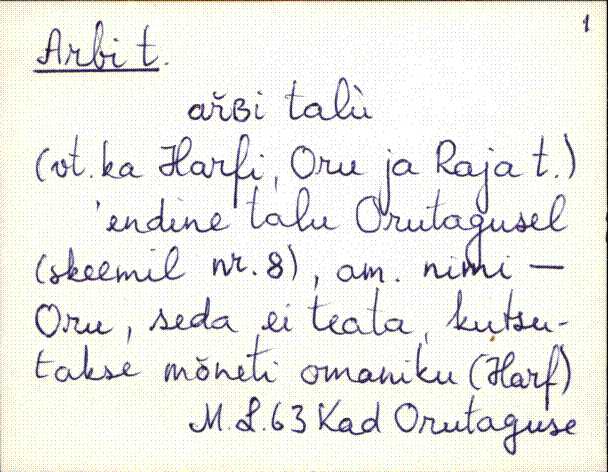 1
Arbi t.
ařʙi talù
(vt. ka Harfi, Oru ja Raja t.)
'endine talu Orutagusel
(skeemil nr. 8), am. nimi —
Oru, seda ei teata, kutsu-
takse mõneti omaniku (Harf)
M. L. 63 Kad Orutaguse